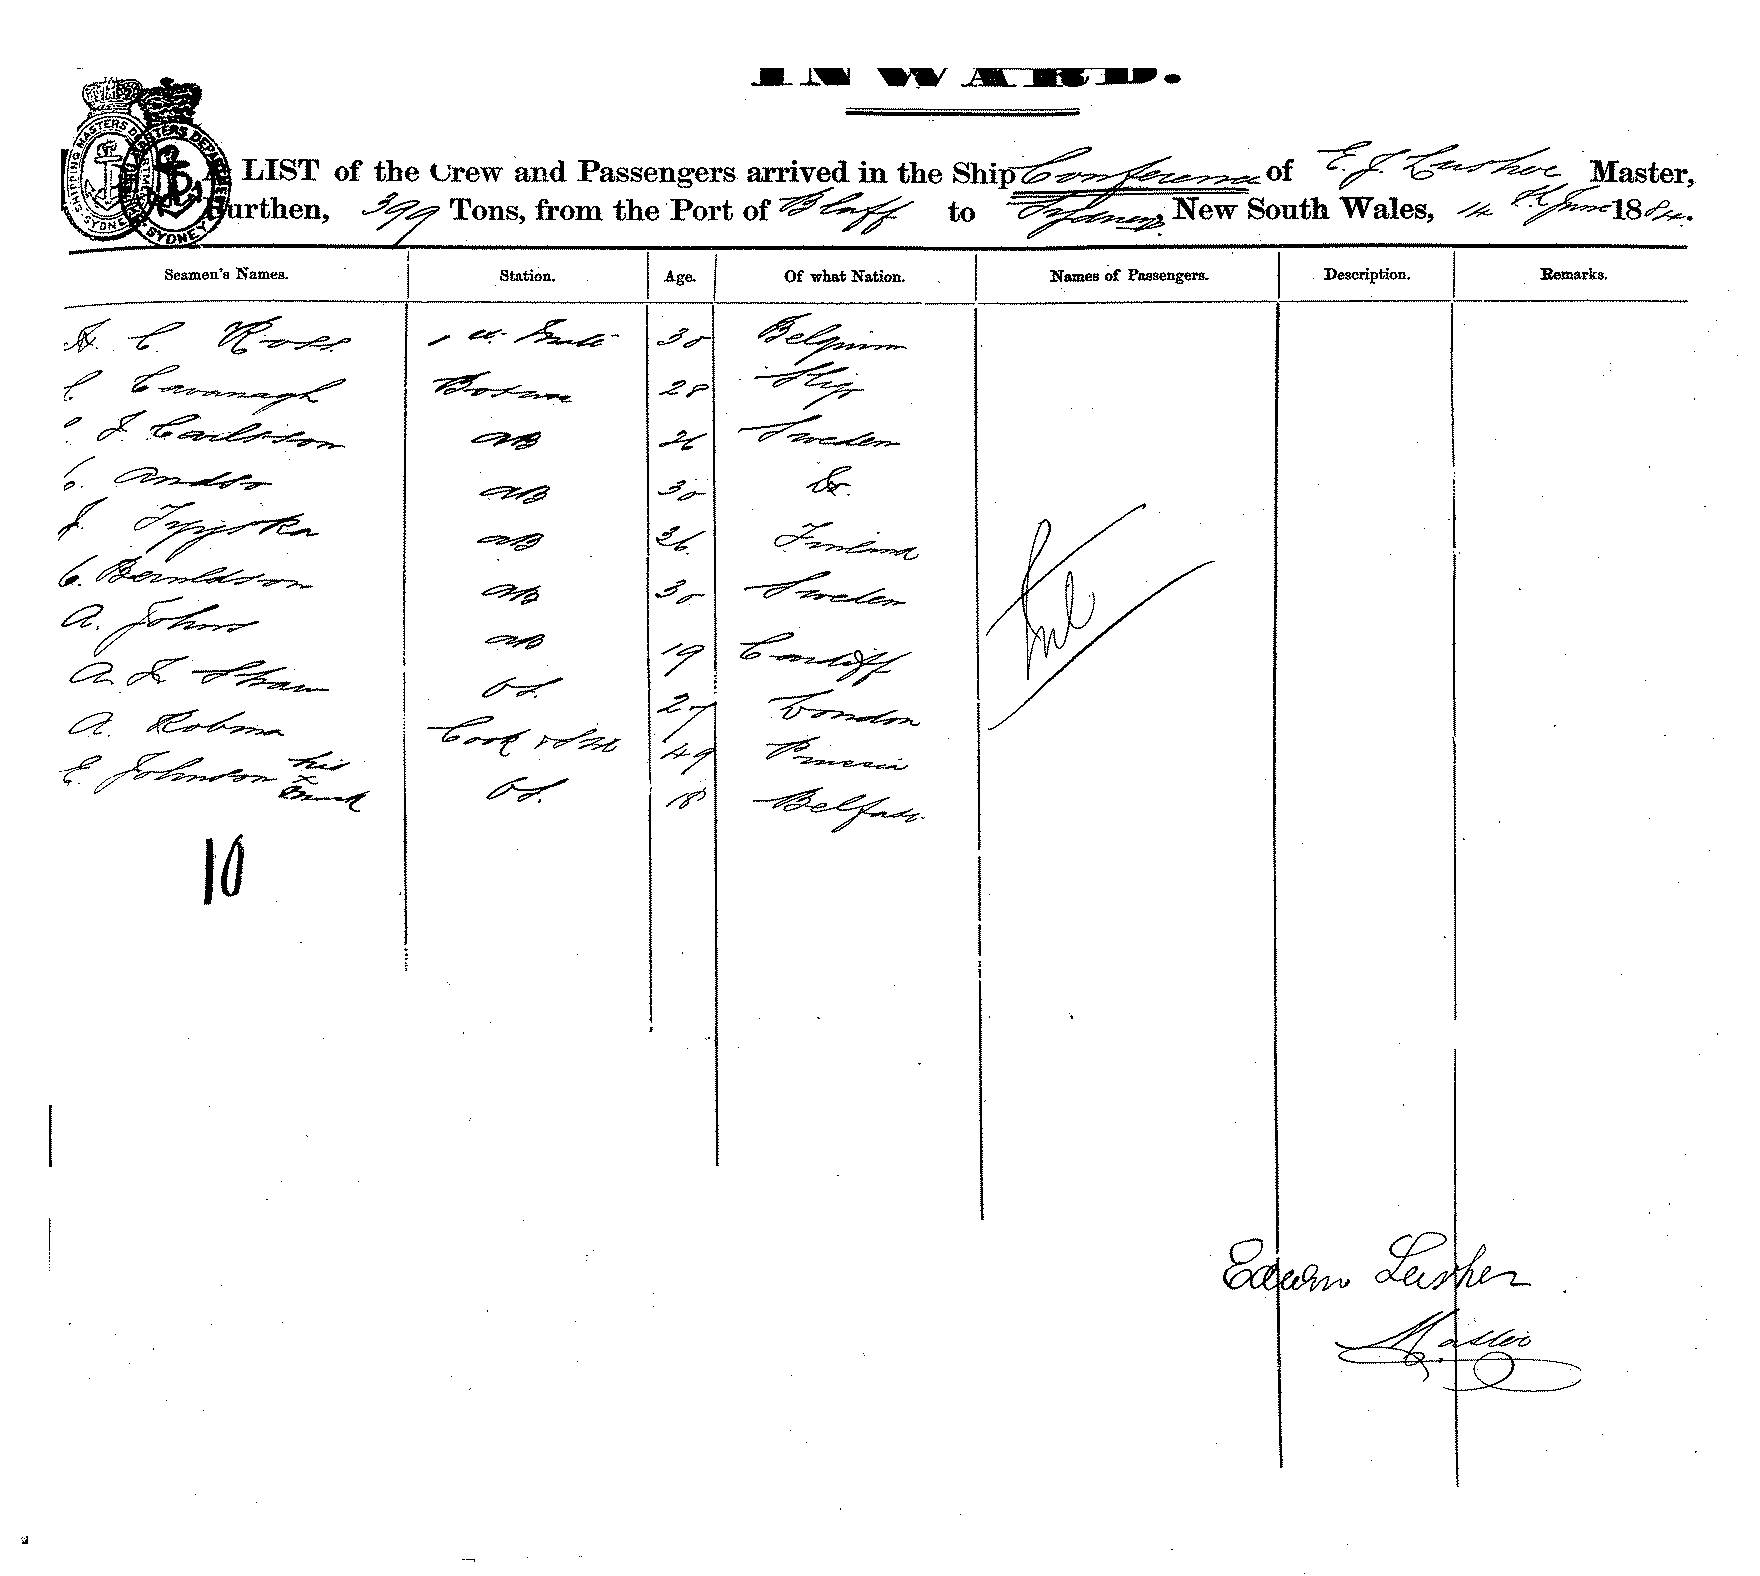 INWARD.
SHIPPING MASTERS DEPARTMENT SYDNEY
LIST of the Crew and Passengers arrived in the Ship Conference of E. J. Lusher Master,
Burthen, 399 Tons, from the Port of Bluff to Sydney New South Wales, 14 June 1884.
Seamen's Names. Station. Age. Of what Nation. Names of Passengers. Description. Remarks.
C. Ross 1st Mate 30 Belgium
C. Cavanagh Bosun 28 Sligo
J. Carlsson AB 26 Sweden
AB 30 Do.
J. AB 26 Finland
C. AB 30 Sweden
A. Johns AB 19 Cardiff
A. Shaw OS. 27 London
A. Cook & Std 49
E. Johnson his x mark OS. 18 Belfast
Nil
10
Edwin Lusher
Master